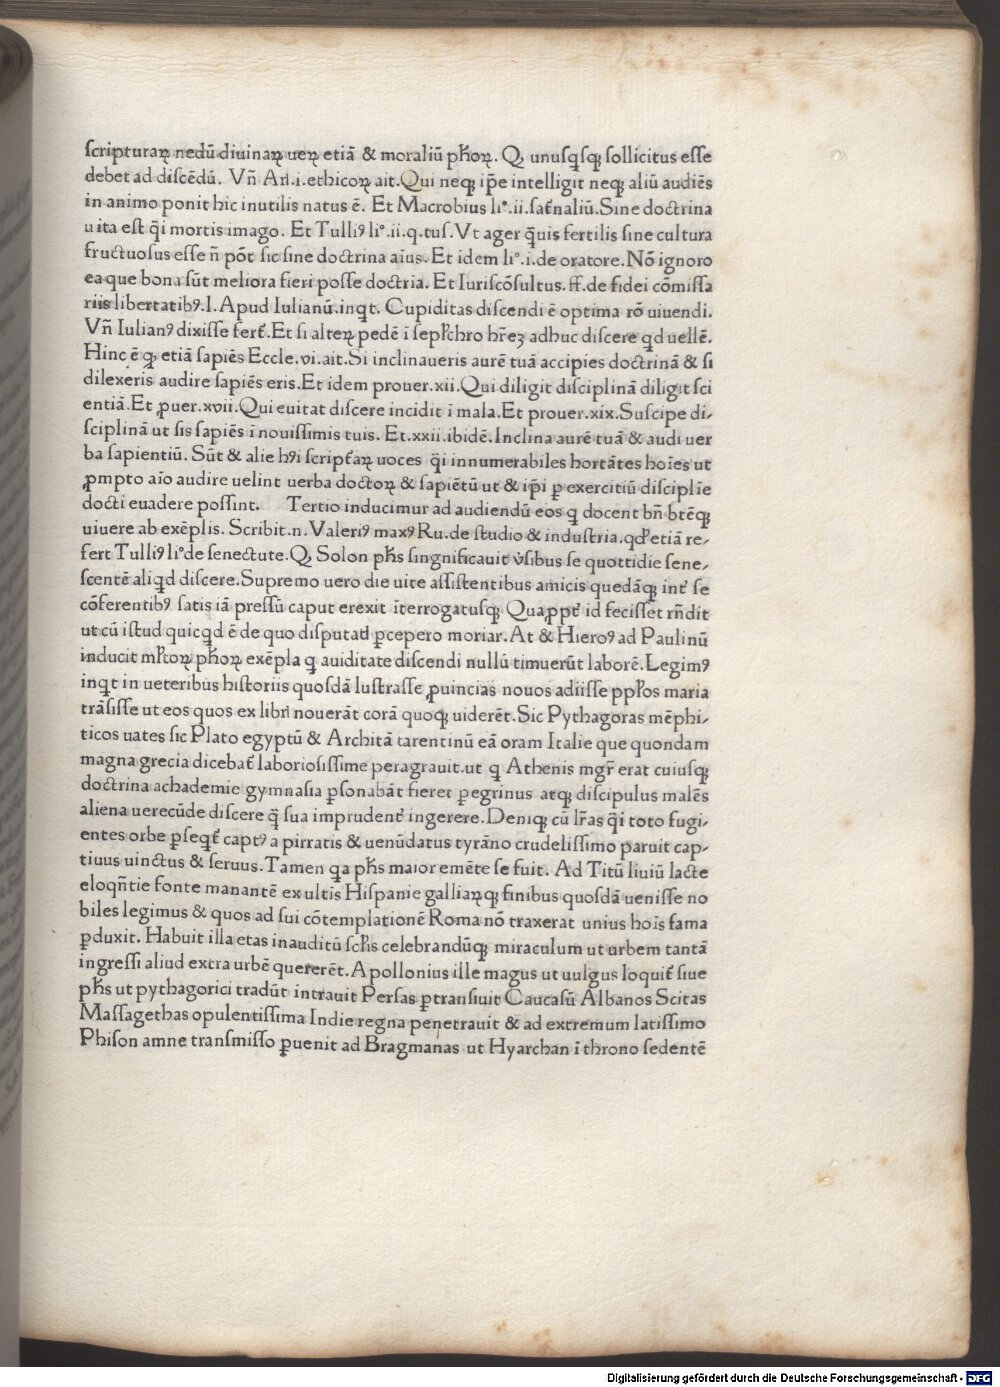 scripturaꝝ nedū diuinaꝝ ueꝝ etiā & moraliū pħoꝝ. Qꝫ unusqsqꝫ sollicitus esse
debet ad discēdū. Vñ Arl.i.ethicoꝝ ait.Qui neqꝫ ip̄e intelligit neqꝫ aliū audiēs
in animo ponit hic inutilis natus ē. Et Macrobius li°.ii.satńaliū.Sine doctrina
uita est q̄i mortis imago. Et Tulliꝰ li°.ii.q.tus.Vt ager q̄uis fertilis sine cultura
fructuosus esse ñ pōt sic sine doctrina aīus.Et idem li°.i.de oratore.Nō ignoro
ea que bona sūt meliora fieri posse doctria. Et Iuriscōsultus.ff.de fidei cōmissa
riis libertatibꝰ.l.Apud Iulianū.inqt. Cupiditas discendi ē optima rō uiuendi.
Vñ Iulianꝰ dixisse fert̄.Et si alteꝝ pedē ī seplc̄hro hr̄eꝫ adhuc discere qd uellē.
Hinc ē qꝫ etiā sapiēs Eccle.vi.ait.Si inclinaueris aurē tuā accipies doctrinā & si
dilexeris audire sapiēs eris.Et idem prouer.xii.Qui diligit disciplinā diligit sci
entiā.Et ꝓuer.xvii.Qui euitat discere incidit ī mala.Et prouer.xix.Suscipe di-
sciplinā ut sis sapiēs ī nouissimis tuis. Et.xxii.ibidē.Inclina aurē tuā & audi uer
ba sapientiū. Sūt & alie hꝰi script̄aꝝ uoces q̄i innumerabiles hortātes hoīes ut
ꝓmpto aīo audire uelint uerba doctoꝝ & sapiētū ut & ip̄i ꝑ exercitiū disciplīe
docti euadere possint. Tertio inducimur ad audiendū eos q docent bñ btēqꝫ
uiuere ab exēplis. Scribit.n.Valeriꝰ maxꝰ Ru.de studio & industria.qđ etiā re-
fert Tulliꝰ li°de senectute.Qꝫ Solon pħs singnificauit v̄sibus se quottidie sene-
scentē aliqd discere.Supremo uero die uite assistentibus amicis quedāqꝫ int̄ se
cōferentibꝰ satis iā pressū caput erexit īterrogatusqꝫ Quaꝓpt̄ id fecisset rñdit
ut cū istud quicqd ē de quo disputat̄ ꝑcepero moriar. At & Hieroꝰ ad Paulinū
inducit mlt̄oꝝ pħoꝝ exēpla q auiditate discendi nullū timuerūt laborē.Legimꝰ
inqt in ueteribus historiis quosdā lustrasse ꝓuincias nouos adiisse pplōs maria
trāsisse ut eos quos ex libri nouerāt corā quoqꝫ uiderēt.Sic Pythagoras mēphi-
ticos uates sic Plato egyptū & Architā tarentinū eā oram Italie que quondam
magna grecia dicebat̄ laboriosissime peragrauit.ut q Athenis mgr̄ erat cuiusqꝫ
doctrina achademie gymnasia ꝑsonabāt fieret ꝑegrinus atqꝫ discipulus malēs
aliena uerecūde discere q̄ sua imprudent̄ ingerere.Deniqꝫ cū lr̄as q̄i toto fugi-
entes orbe ꝑseqt̄ captꝰ a pirratis & uenūdatus tyrāno crudelissimo paruit cap-
tiuus uinctus & seruus.Tamen qa pħs maior emēte se fuit. Ad Titū liuiū lacte
eloqñtie fonte manantē ex ultis Hispanie galliaꝝqꝫ finibus quosdā uenisse no
biles legimus & quos ad sui cōtemplationē Roma nō traxerat unius hoīs fama
ꝑduxit. Habuit illa etas inauditū sclīs celebrandūqꝫ miraculum ut urbem tantā
ingressi aliud extra urbē quererēt.Apollonius ille magus ut uulgus loquit̄ siue
pħs ut pythagorici tradūt intrauit Persas ꝑtransiuit Caucasū Albanos Scitas
Massagethas opulentissima Indie regna penetrauit & ad extremum latissimo
Phison amne transmisso ꝑuenit ad Bragmanas ut Hyarchan ī throno sedentē
Digitalisierung gefördert durch die Deutsche Forschungsgemeinschaft - DFG